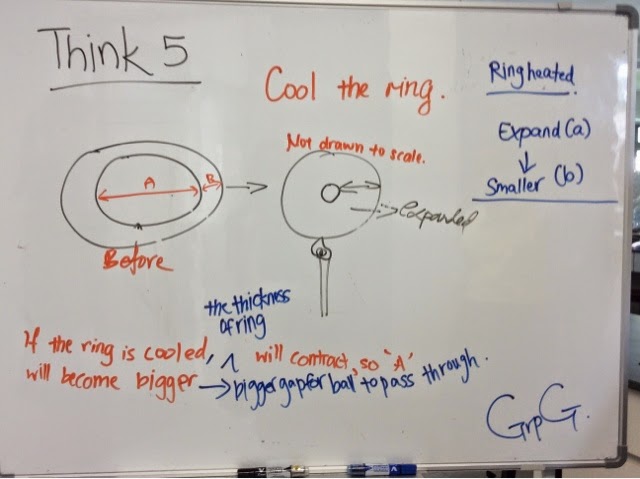 Think 5
Cool the ring.
Ring heated
Expand (a)
Smaller (b)
Not drawn to scale.
A
B
Expanded
Before
the thickness
of ring
If the ring is cooled, will contract, so 'A'
will become bigger → bigger gap for ball to pass through.
Grp G.